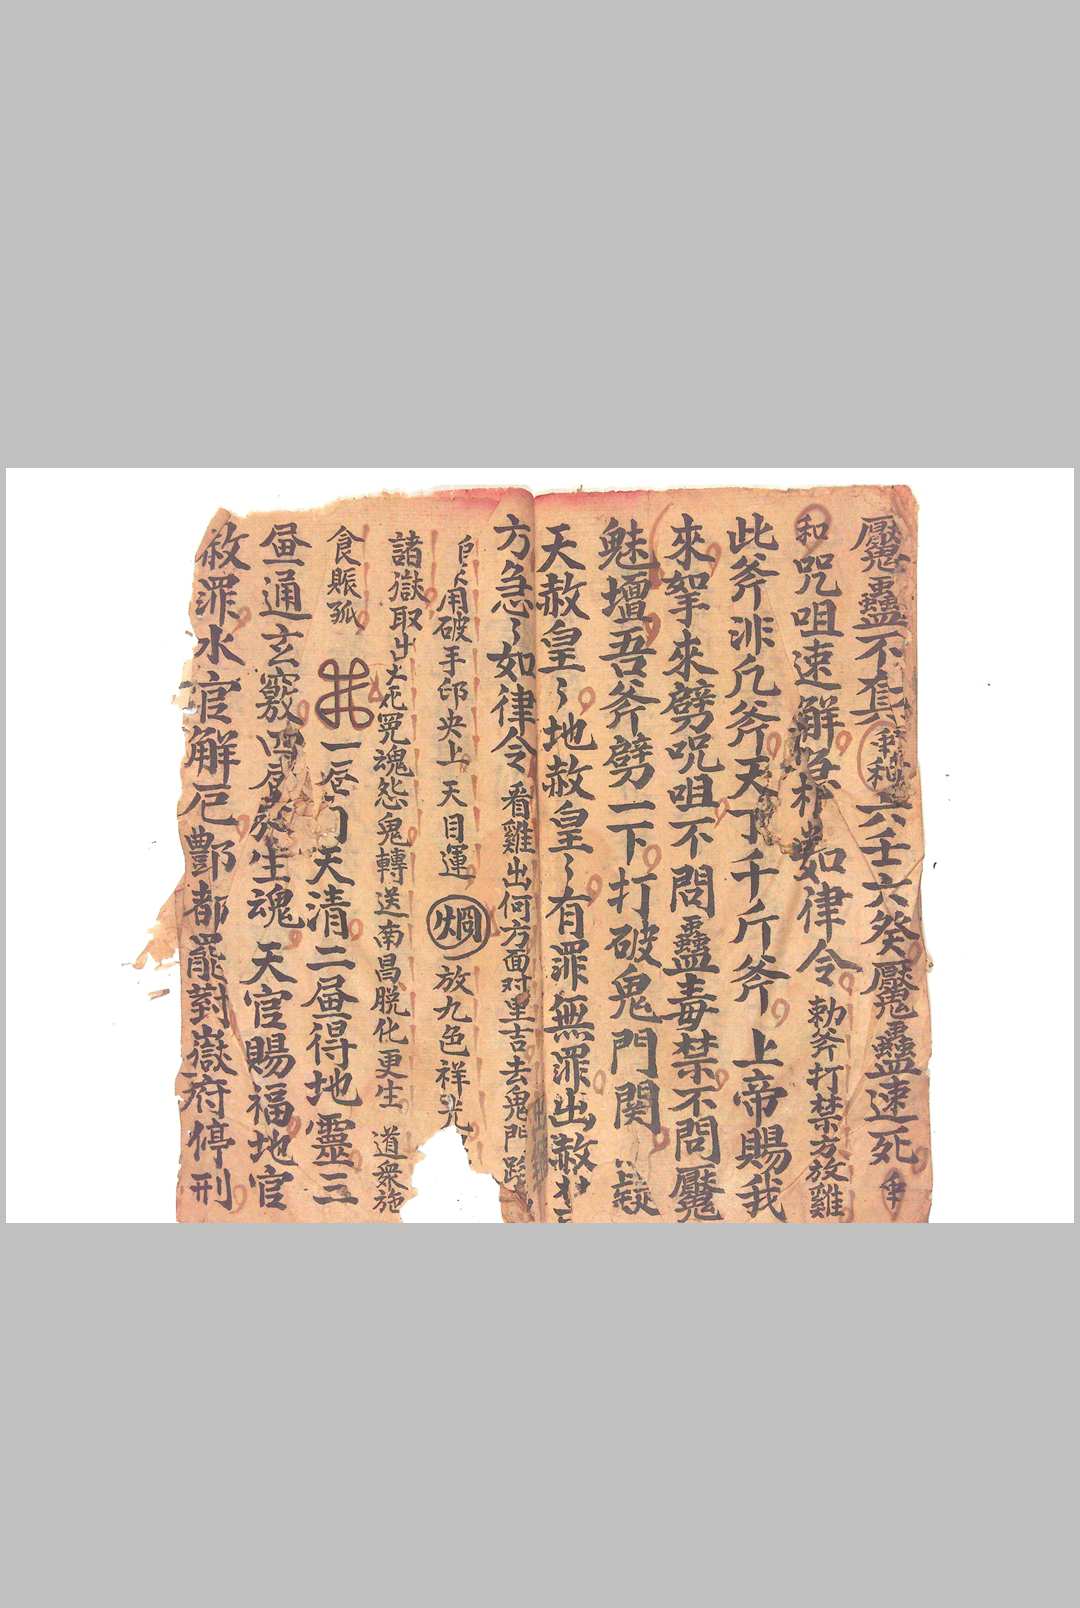 魘蠱不真六壬六癸魘蠱速死
和咒咀速解如律令勅斧打禁方放雞
此斧非凡斧天下千斤斧上帝賜我
來拏來劈咒咀不問蠱毒禁不問魘
魅壇吾斧劈一下打破鬼門関
天赦皇〻地赦皇〻有罪無罪出赦
方急〻如律令看雞出何方面对里吉去鬼門
用破手印央上天目運炯放九色祥光
諸嶽取出冤魂怨鬼轉送南昌脱化更生道衆施
食賑孤一天清二昼得地靈三
昼通玄竅四生魂天官賜福地官
赦罪水官解厄酆都罷對嶽府停刑